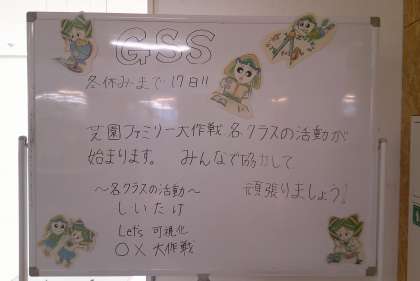 GSS
冬休みまで17日!!
芝園ファミリー大作戦 各クラスの活動が
始まります。 みんなで協力して
頑張りましょう!
〜各クラスの活動〜
しいたけ
Let's 可視化
○×大作戦